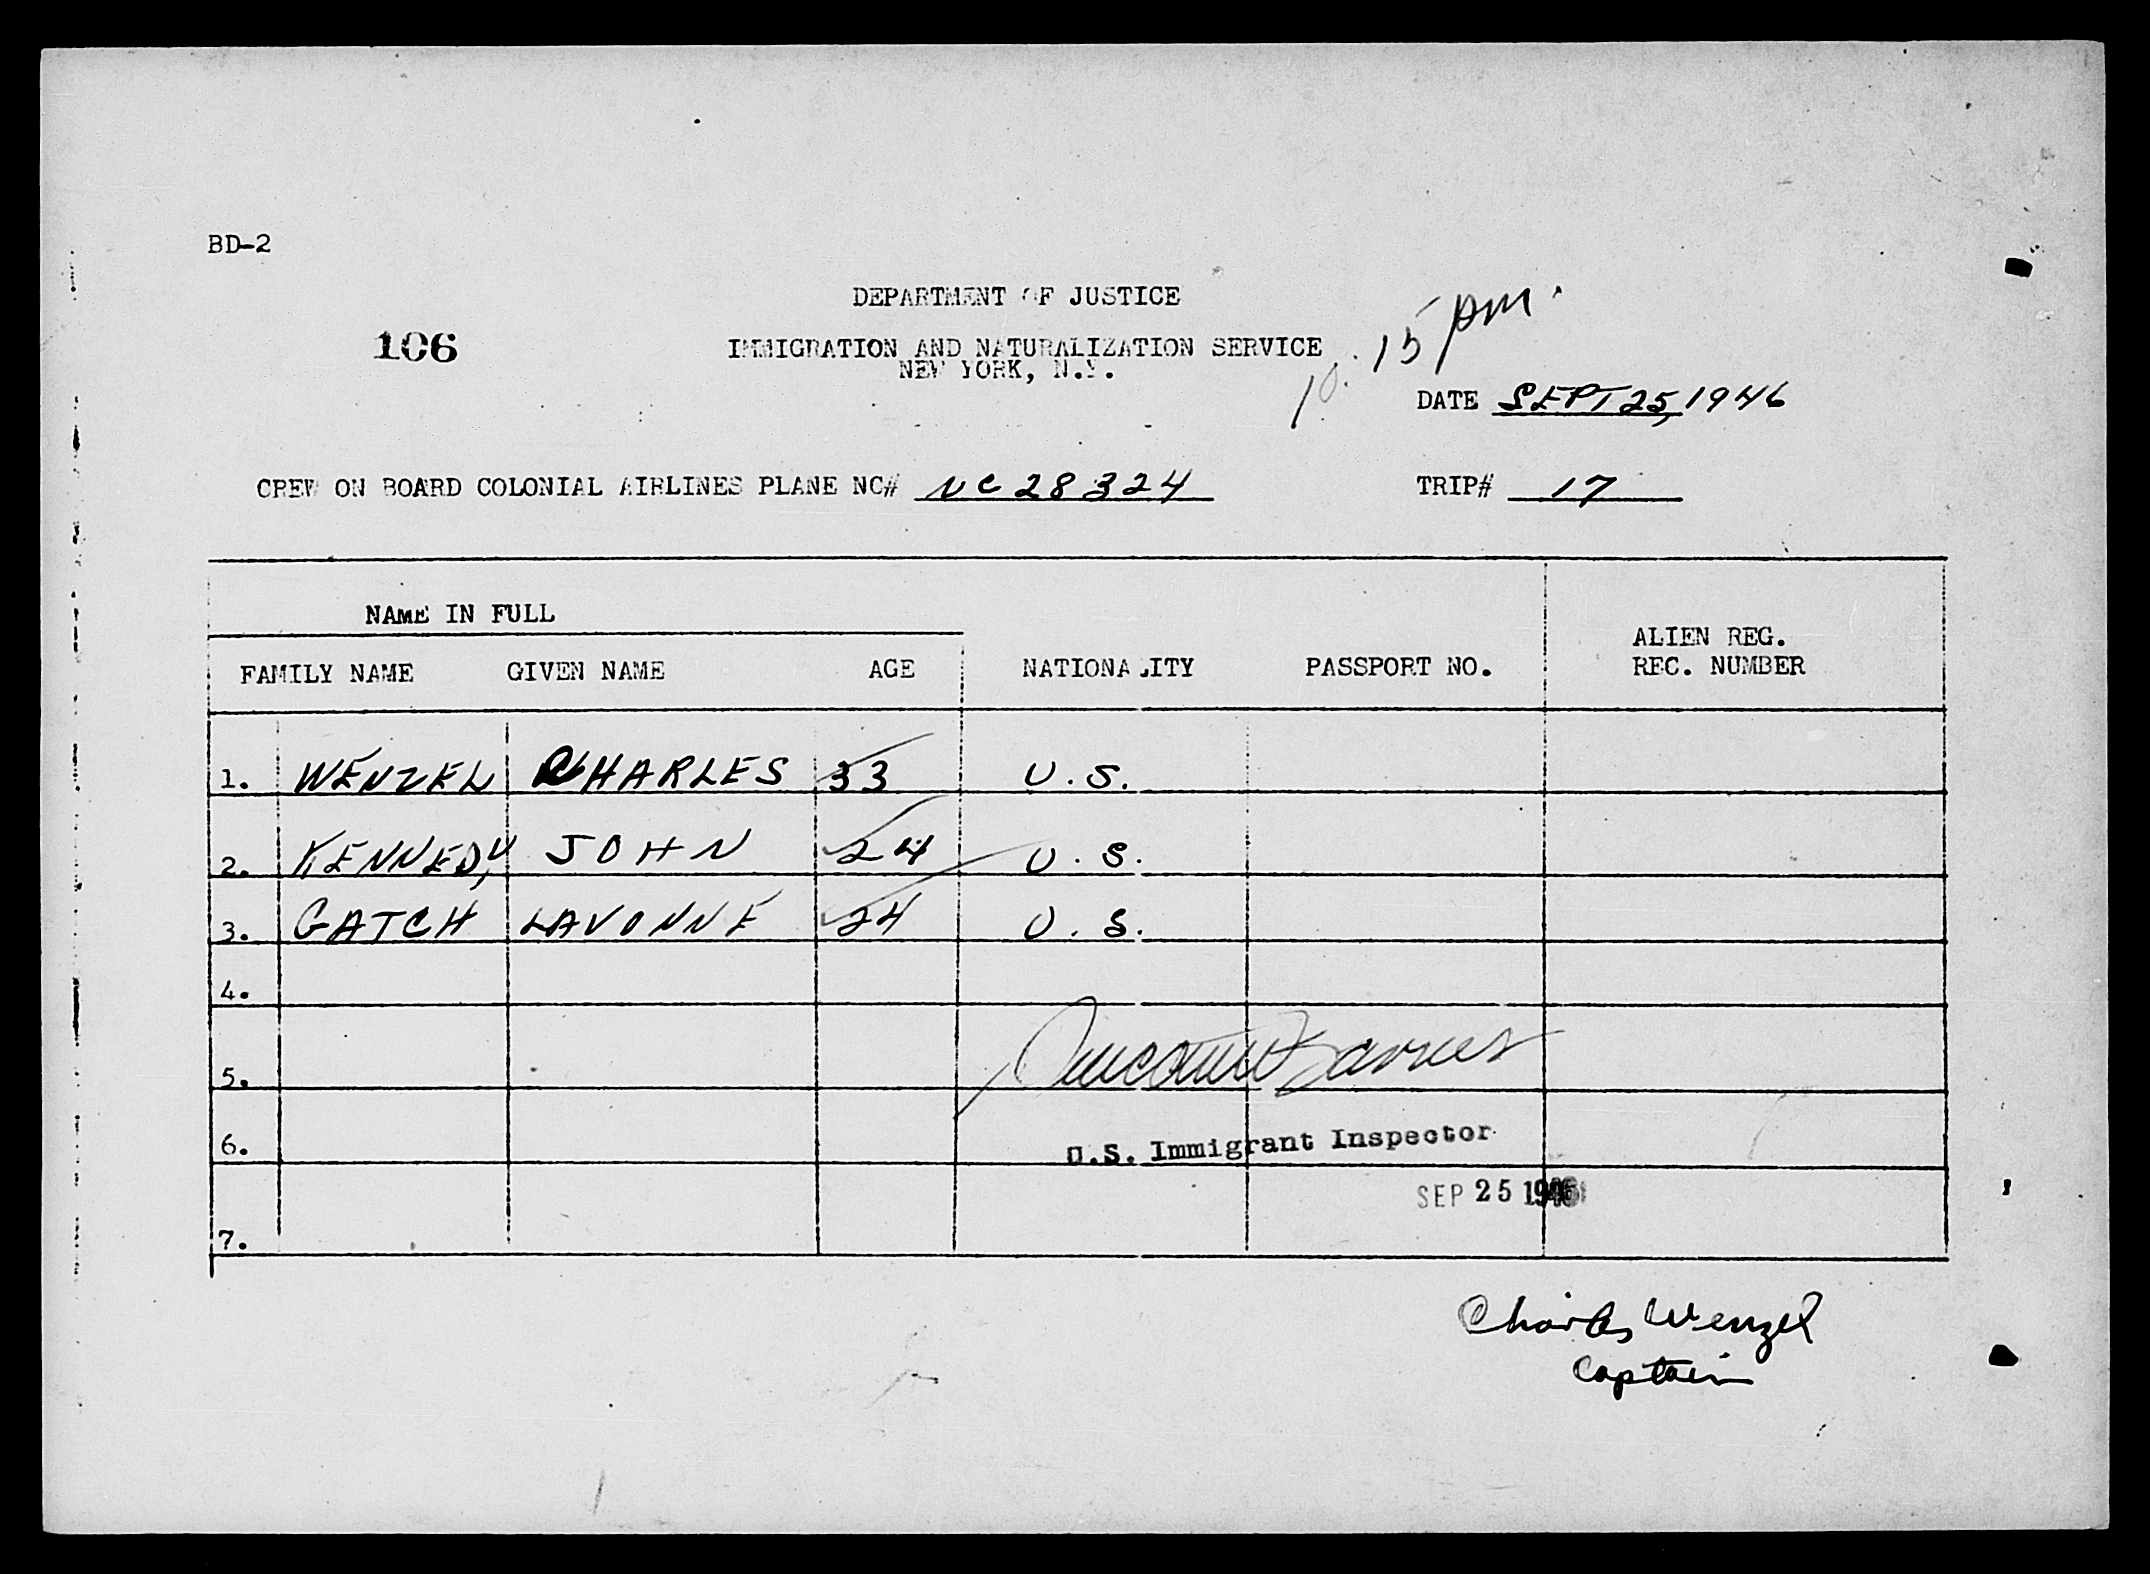 BD-2
DEPARTMENT OF JUSTICE
106
IMMIGRATION AND NATURALIZATION SERVICE
NEW YORK, N.Y.
10:15 pm.
DATE SEPT 25, 1946
CREW ON BOARD COLONIAL AIRLINES PLANE NC# NC 28324 TRIP# 17
NAME IN FULL
FAMILY NAME GIVEN NAME AGE NATIONALITY PASSPORT NO. ALIEN REG. REC. NUMBER
1. WENZEL CHARLES 33 U.S.
2. KENNEDY, JOHN 24 U.S.
3. GATCH LAVONNE 24 U.S.
4.
5.
6.
U.S. Immigrant Inspector
SEP 25 1946
7.
Charles Wenzel
Captain